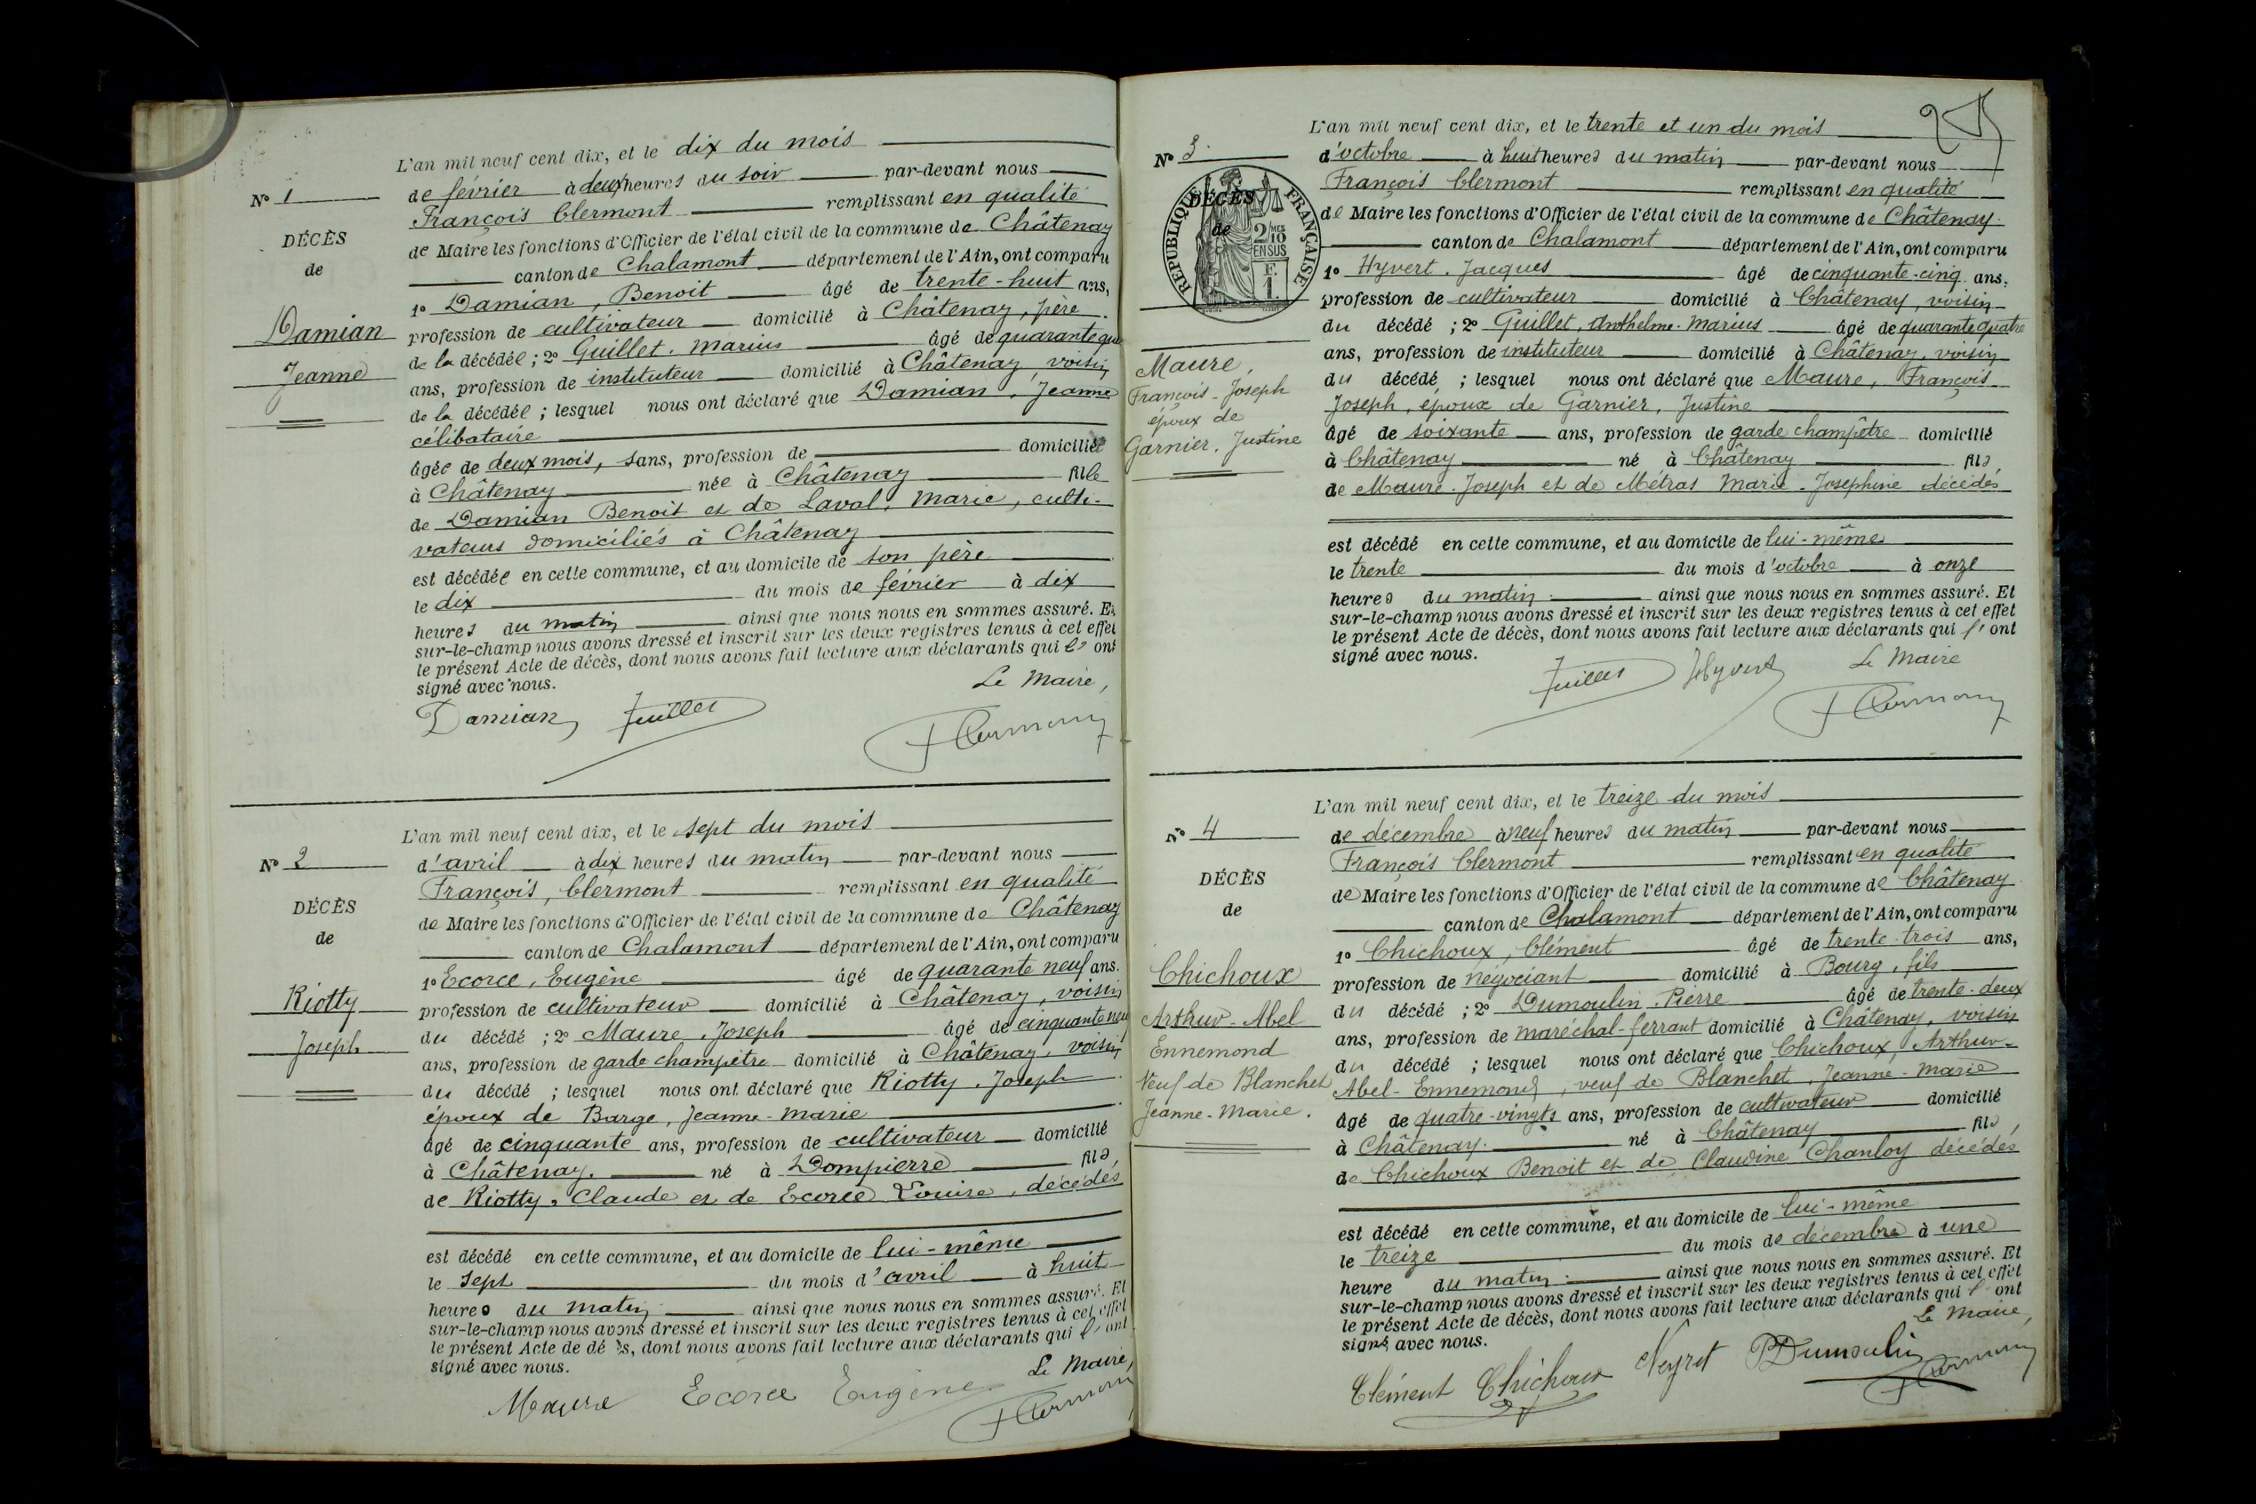 L'an mil neuf cent dix, et le dix du mois
N° 1
de février à deux heures du soir par-devant nous
François Clermont remplissant en qualité
DÉCÈS
de Maire les fonctions d'Officier de l'état civil de la commune de Châtenay
de
canton de Chalamont département de l'Ain, ont comparu
1° Damian, Benoit âgé de trente-huit ans,
Damian
profession de cultivateur domicilié à Châtenay, père
de la décédée ; 2° Guillet. Marius âgé de quarante
Jeanne
ans, profession de instituteur domicilié à Châtenay, voisin
de la décédée ; lesquel nous ont déclaré que Damian, Jeanne
célibataire
âgée de deux mois, sans, profession de domiciliée
à Châtenay née à Châtenay fille
de Damian Benoit et de Laval, Marie, culti-
vateurs domiciliés à Châtenay
est décédée en cette commune, et au domicile de son père
le dix du mois de février à dix
heures du matin ainsi que nous nous en sommes assuré. Et
sur-le-champ nous avons dressé et inscrit sur les deux registres tenus à cet effet
le présent Acte de décès, dont nous avons fait lecture aux déclarants qui l' ont
signé avec nous.
Le Maire,
Damian Guillet
F Clermont
L'an mil neuf cent dix, et le sept du mois
N° 2
d'avril à dix heures du matin par-devant nous
François, Clermont remplissant en qualité
DÉCÈS
de Maire les fonctions d'Officier de l'état civil de la commune de Châtenay
de
canton de Chalamont département de l'Ain, ont comparu
1° Ecorce, Eugène âgé de quarante neuf ans.
Riotty
profession de cultivateur domicilié à Châtenay, voisin
du décédé ; 2° Maure, Joseph âgé de cinquante neuf
Joseph
ans, profession de garde champêtre domicilié à Châtenay, voisin
du décédé ; lesquel nous ont déclaré que Riotty, Joseph
époux de Barge, Jeanne-Marie
âgé de cinquante ans, profession de cultivateur domicilié
à Châtenay. né à Dompierre fils,
de Riotty, Claude et de Ecorce Louise, décédés
est décédé en cette commune, et au domicile de lui-même
le sept du mois d'avril à huit
heures du matin ainsi que nous nous en sommes assuré. Et
sur-le-champ nous avons dressé et inscrit sur les deux registres tenus à cet effet
le présent Acte de décès, dont nous avons fait lecture aux déclarants qui l' ont
signé avec nous.
Le Maire,
Maure Ecorce Eugène
F Clermont
25
L'an mil neuf cent dix, et le trente et un du mois
N° 3.
d'octobre à huit heures du matin par-devant nous
François Clermont remplissant en qualité
DÉCÈS
de
RÉPUBLIQUE FRANÇAISE
2/10 MES EN SUS
F. 1.
de Maire les fonctions d'Officier de l'état civil de la commune de Châtenay.
canton de Chalamont département de l'Ain, ont comparu
1° Hyvert. Jacques âgé de cinquante-cinq ans,
profession de cultivateur domicilié à Châtenay, voisin
du décédé ; 2° Guillet, Anthelme-Marius âgé de quarante quatre
ans, profession de instituteur domicilié à Châtenay, voisin
Maure,
François-Joseph
époux de
Garnier, Justine
du décédé ; lesquel nous ont déclaré que Maure, François
Joseph, époux de Garnier, Justine
âgé de soixante ans, profession de garde champêtre domicilié
à Châtenay né à Châtenay fils,
de Maure. Joseph et de Métras Marie-Josephine décédés
est décédé en cette commune, et au domicile de lui-même
le trente du mois d'octobre à onze
heures du matin. ainsi que nous nous en sommes assuré. Et
sur-le-champ nous avons dressé et inscrit sur les deux registres tenus à cet effet
le présent Acte de décès, dont nous avons fait lecture aux déclarants qui l' ont
signé avec nous.
Guillet Hyvert Le Maire
F Clermont
L'an mil neuf cent dix, et le treize du mois
N° 4
de décembre à neuf heures du matin par-devant nous
François Clermont remplissant en qualité
DÉCÈS
de Maire les fonctions d'Officier de l'état civil de la commune de Châtenay
de
canton de Chalamont département de l'Ain, ont comparu
1° Chichoux, Clément âgé de trente-trois ans,
Chichoux
profession de négociant domicilié à Bourg, fils
du décédé ; 2° Dumoulin. Pierre âgé de trente-deux
Arthur-Abel
Ennemond
Veuf de Blanchet
Jeanne-Marie.
ans, profession de maréchal-ferrant domicilié à Châtenay, voisin
du décédé ; lesquel nous ont déclaré que Chichoux, Arthur-
Abel-Ennemond, veuf de Blanchet, Jeanne-Marie
âgé de quatre-vingts ans, profession de cultivateur domicilié
à Châtenay. né à Châtenay fils,
de Chichoux Benoit et de Claudine Chanloy décédés
est décédé en cette commune, et au domicile de lui-même
le treize du mois de décembre à une
heure du matin. ainsi que nous nous en sommes assuré. Et
sur-le-champ nous avons dressé et inscrit sur les deux registres tenus à cet effet
le présent Acte de décès, dont nous avons fait lecture aux déclarants qui l' ont
signé avec nous.
Le Maire,
Clément Chichoux Neyret P Dumoulin
F Clermont